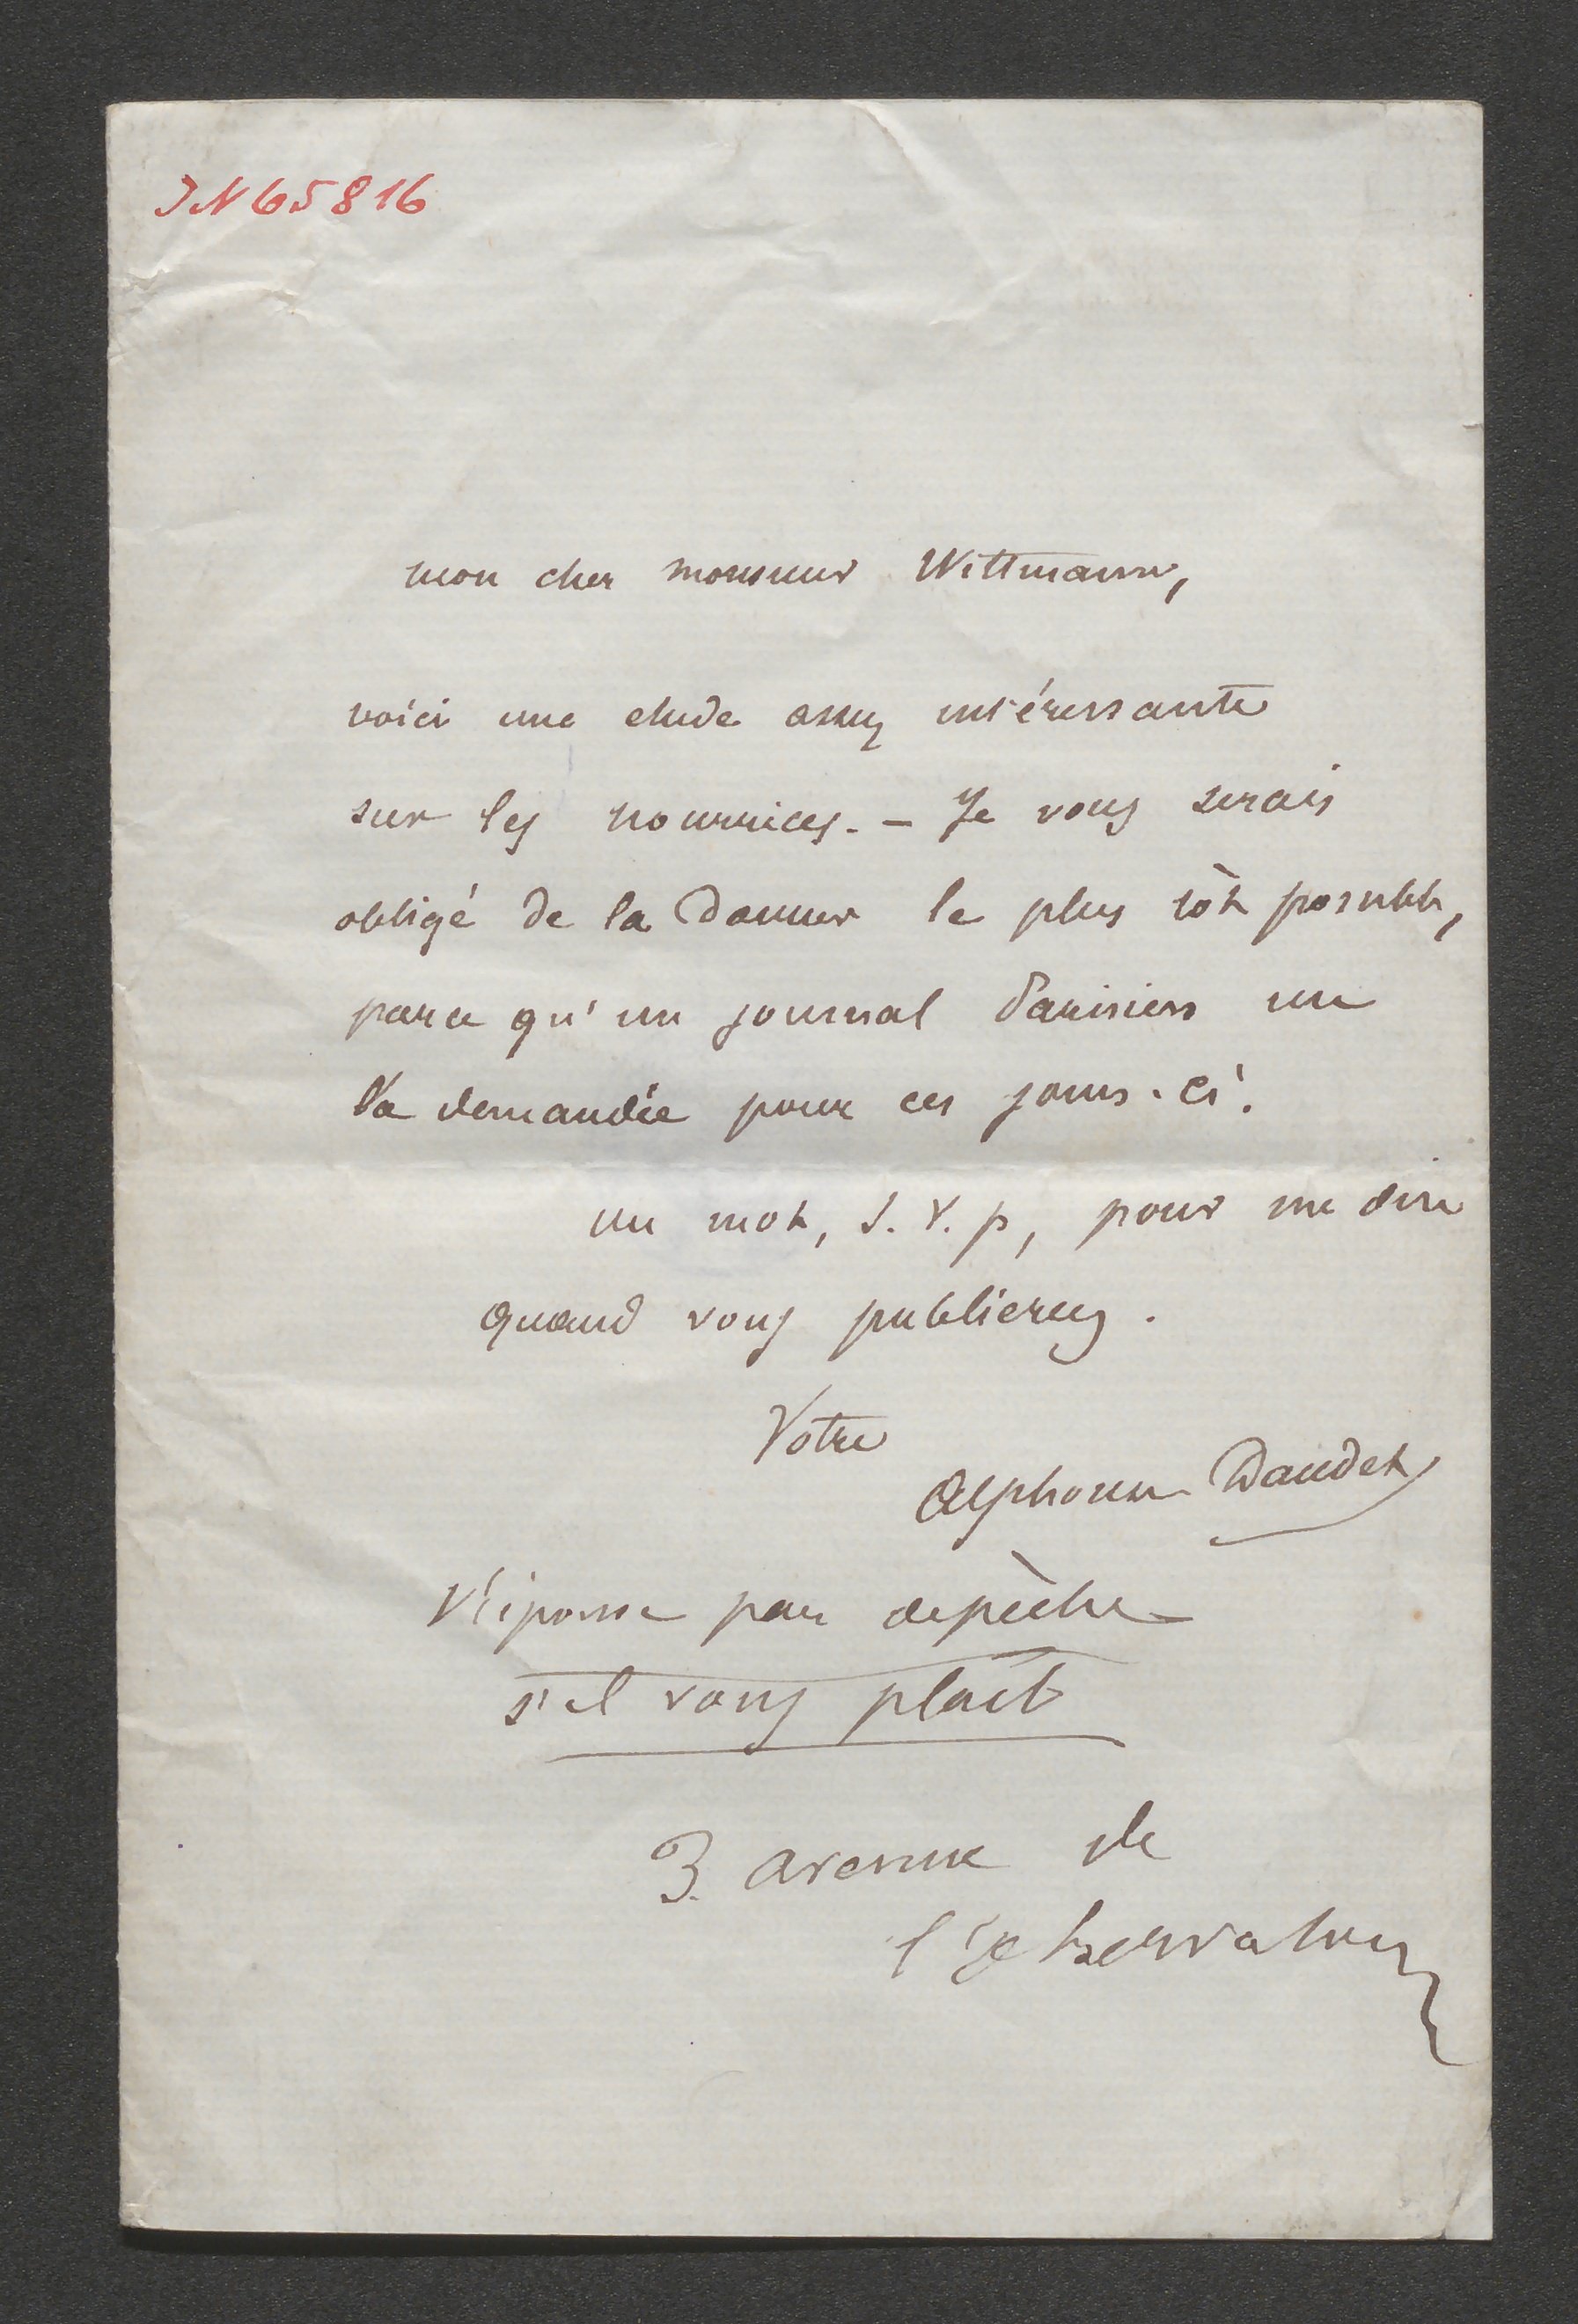 IN 65816
mon cher monsieur Wittmann,
voici une etude assez intéressante
sur les nourrices. – Je vous serais
obligé de la donner le plus tôt possible,
parce qu'un journal Parisien me
l'a demandée pour ces jours-ci.
un mot, S. V. p, pour me dire
quand vous publierez.
Votre
Alphonse Daudet
réponse par depèche
s'il vous plait
3. avenue de
l'observatoire